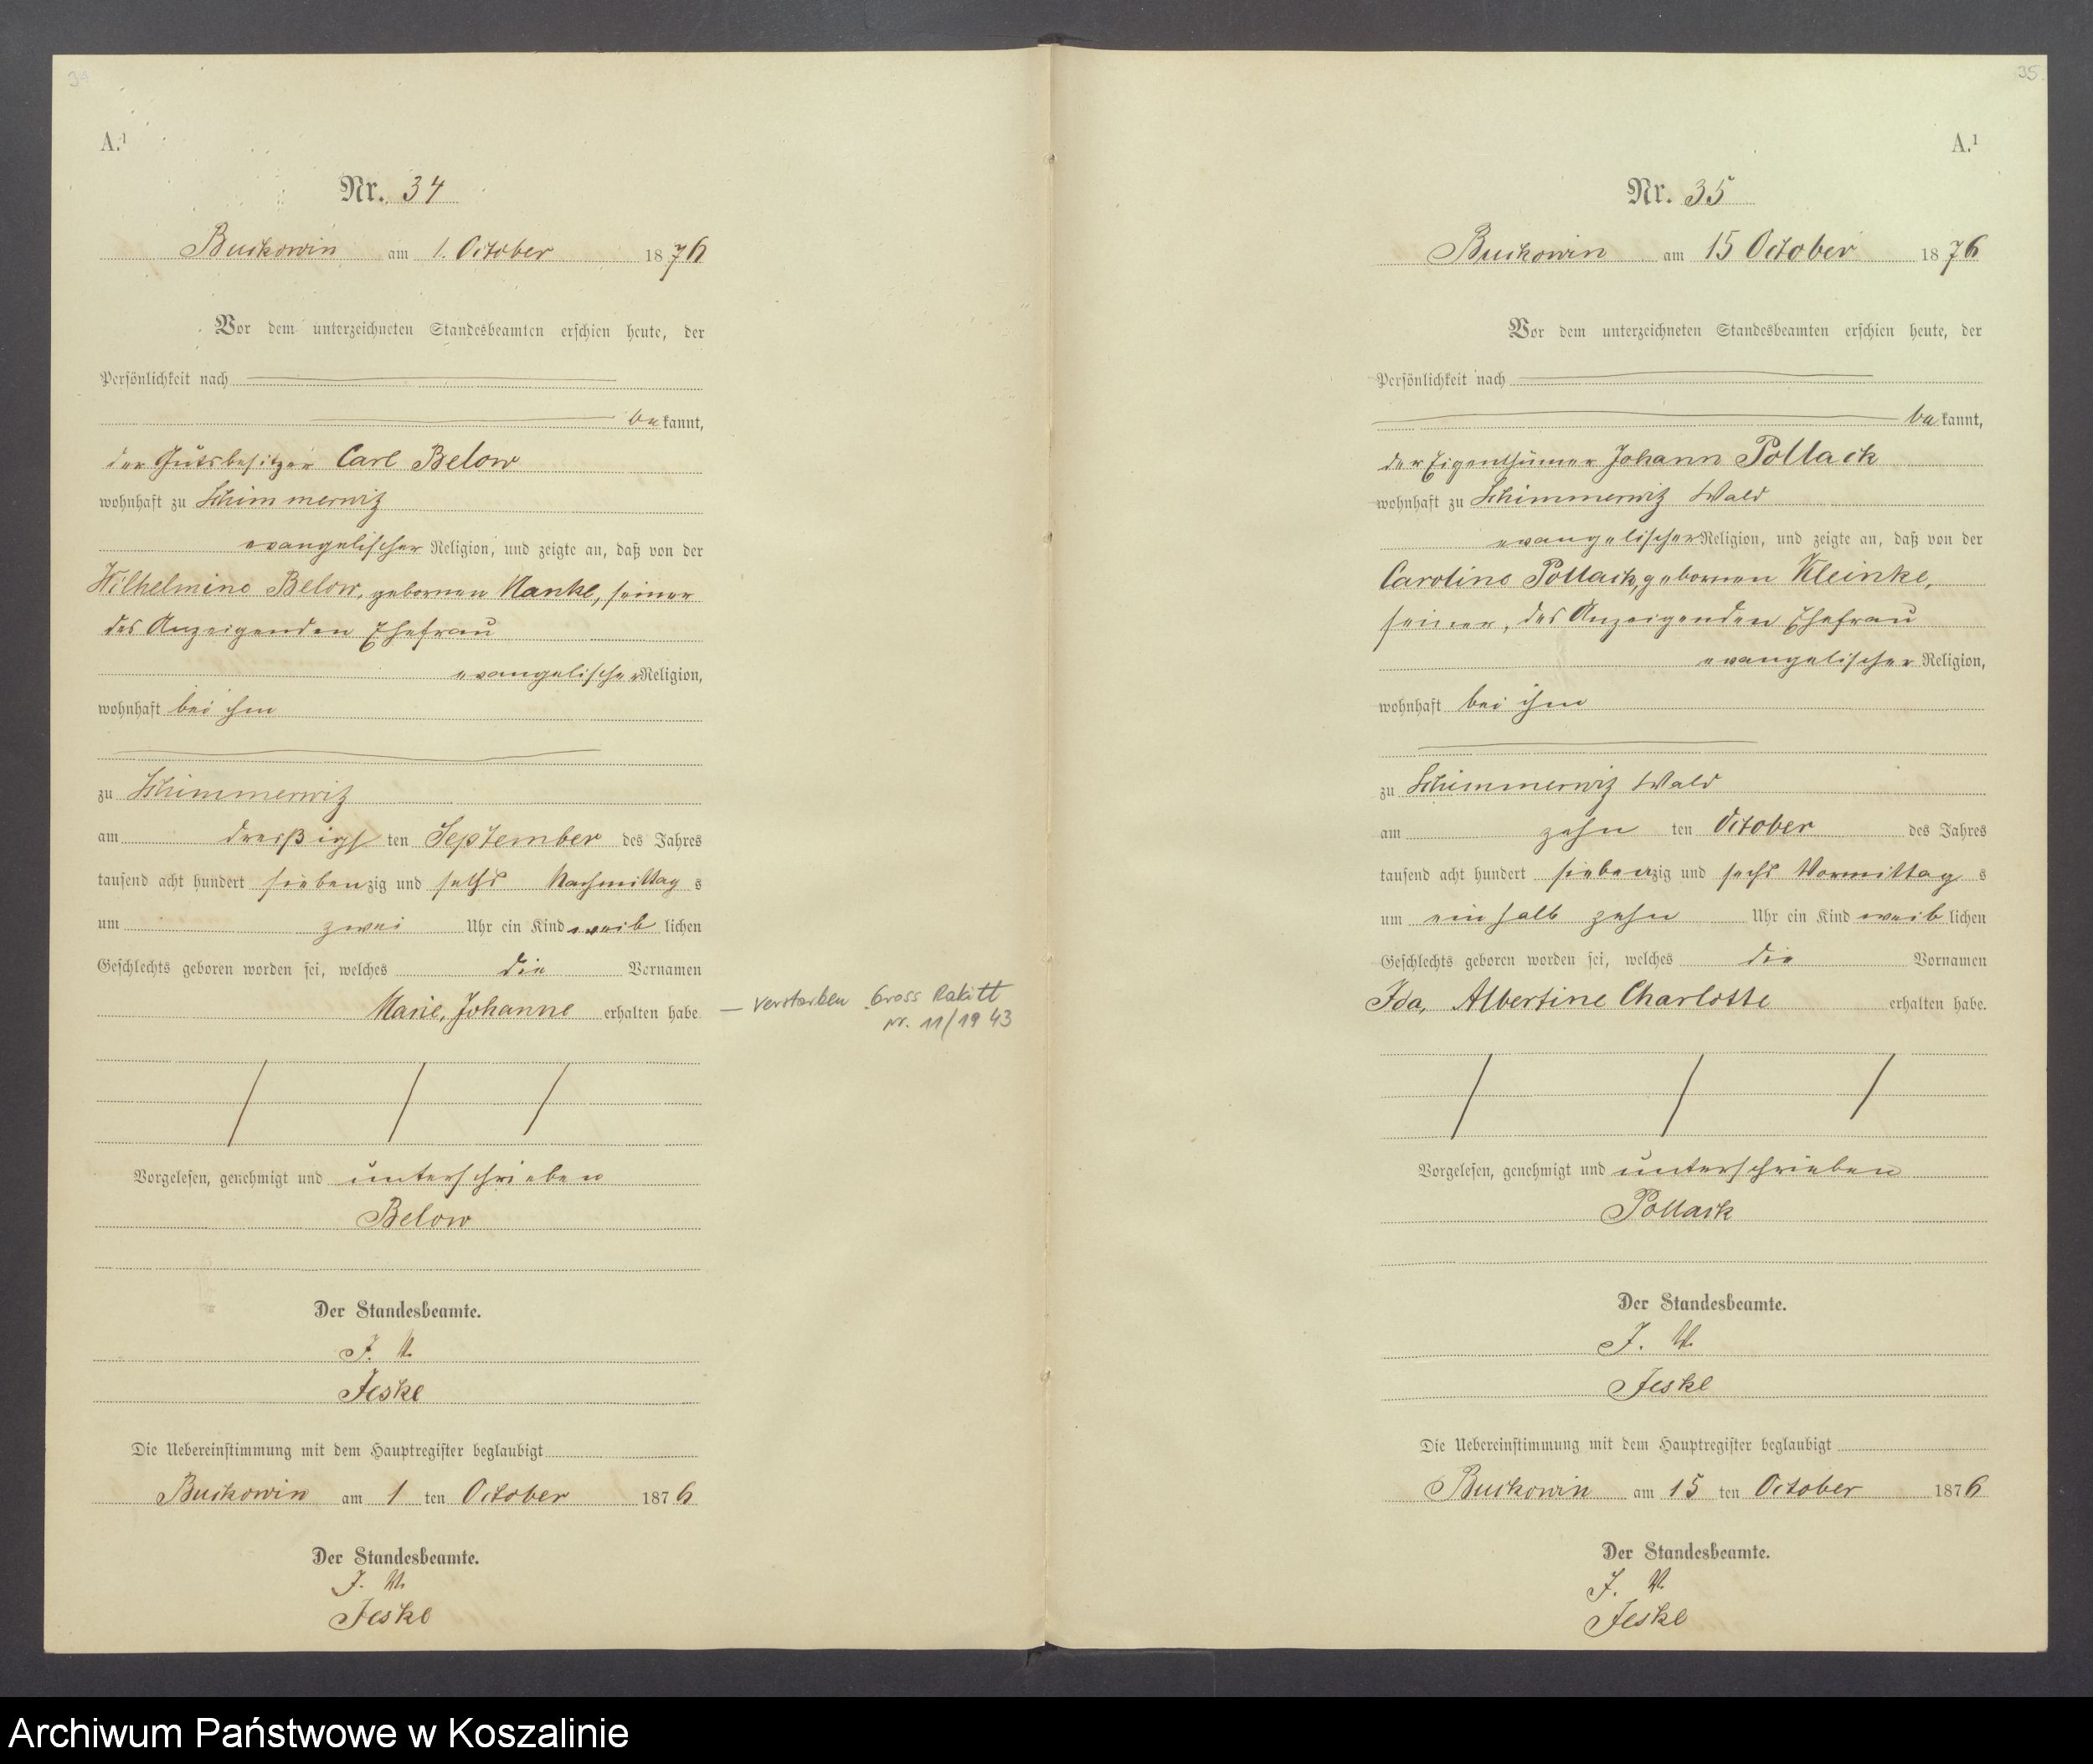 34
A.¹
Nr. 34
Buckowin am 1. October 1876
Vor dem unterzeichneten Standesbeamten erschien heute, der
Persönlichkeit nach
bekannt,
der Gutsbesitzer Carl Below
wohnhaft zu Schimmerwitz
evangelischer Religion, und zeigte an, daß von der
Wilhelmine Below, gebornen Manke, seiner
des Anzeigenden Ehefrau
evangelischer Religion,
wohnhaft bei ihm
zu Schimmerwitz
am dreißigsten September des Jahres
tausend acht hundert siebenzig und sechs Nachmittags
um zwei Uhr ein Kind weiblichen
Geschlechts geboren worden sei, welches die Vornamen
Marie, Johanne erhalten habe
— verstorben Gross Rakitt
Nr. 11/1943
Vorgelesen, genehmigt und unterschrieben
Below
Der Standesbeamte.
J. V.
Jeske
Die Uebereinstimmung mit dem Hauptregister beglaubigt
Buckowin am 1 ten October 1876
Der Standesbeamte.
J. V.
Jeske
35.
A.¹
Nr. 35
Buckowin am 15 October 1876
Vor dem unterzeichneten Standesbeamten erschien heute, der
Persönlichkeit nach
bekannt,
der Eigenthümer Johann Pollack
wohnhaft zu Schimmerwitz Wald
evangelischer Religion, und zeigte an, daß von der
Caroline Pollack, gebornen Kleinke,
seiner, des Anzeigenden Ehefrau
evangelischer Religion,
wohnhaft bei ihm
zu Schimmerwitz Wald
am zehn ten October des Jahres
tausend acht hundert siebenzig und sechs Vormittags
um ein halb zehn Uhr ein Kind weiblichen
Geschlechts geboren worden sei, welches die Vornamen
Ida, Albertine Charlotte erhalten habe.
Vorgelesen, genehmigt und unterschrieben
Pollack
Der Standesbeamte.
J. V.
Jeske
Die Uebereinstimmung mit dem Hauptregister beglaubigt
Buckowin am 15 ten October 1876
Der Standesbeamte.
J. V.
Jeske
Archiwum Państwowe w Koszalinie